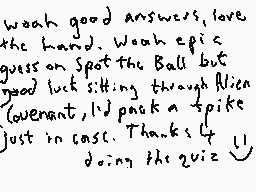 woah good answers, love
the hand. Woah epic
guess on Spot the Ball but
good luck sitting through Alien
Covenant, I'd pack a spike
just in case. Thanks 4
doing the quiz